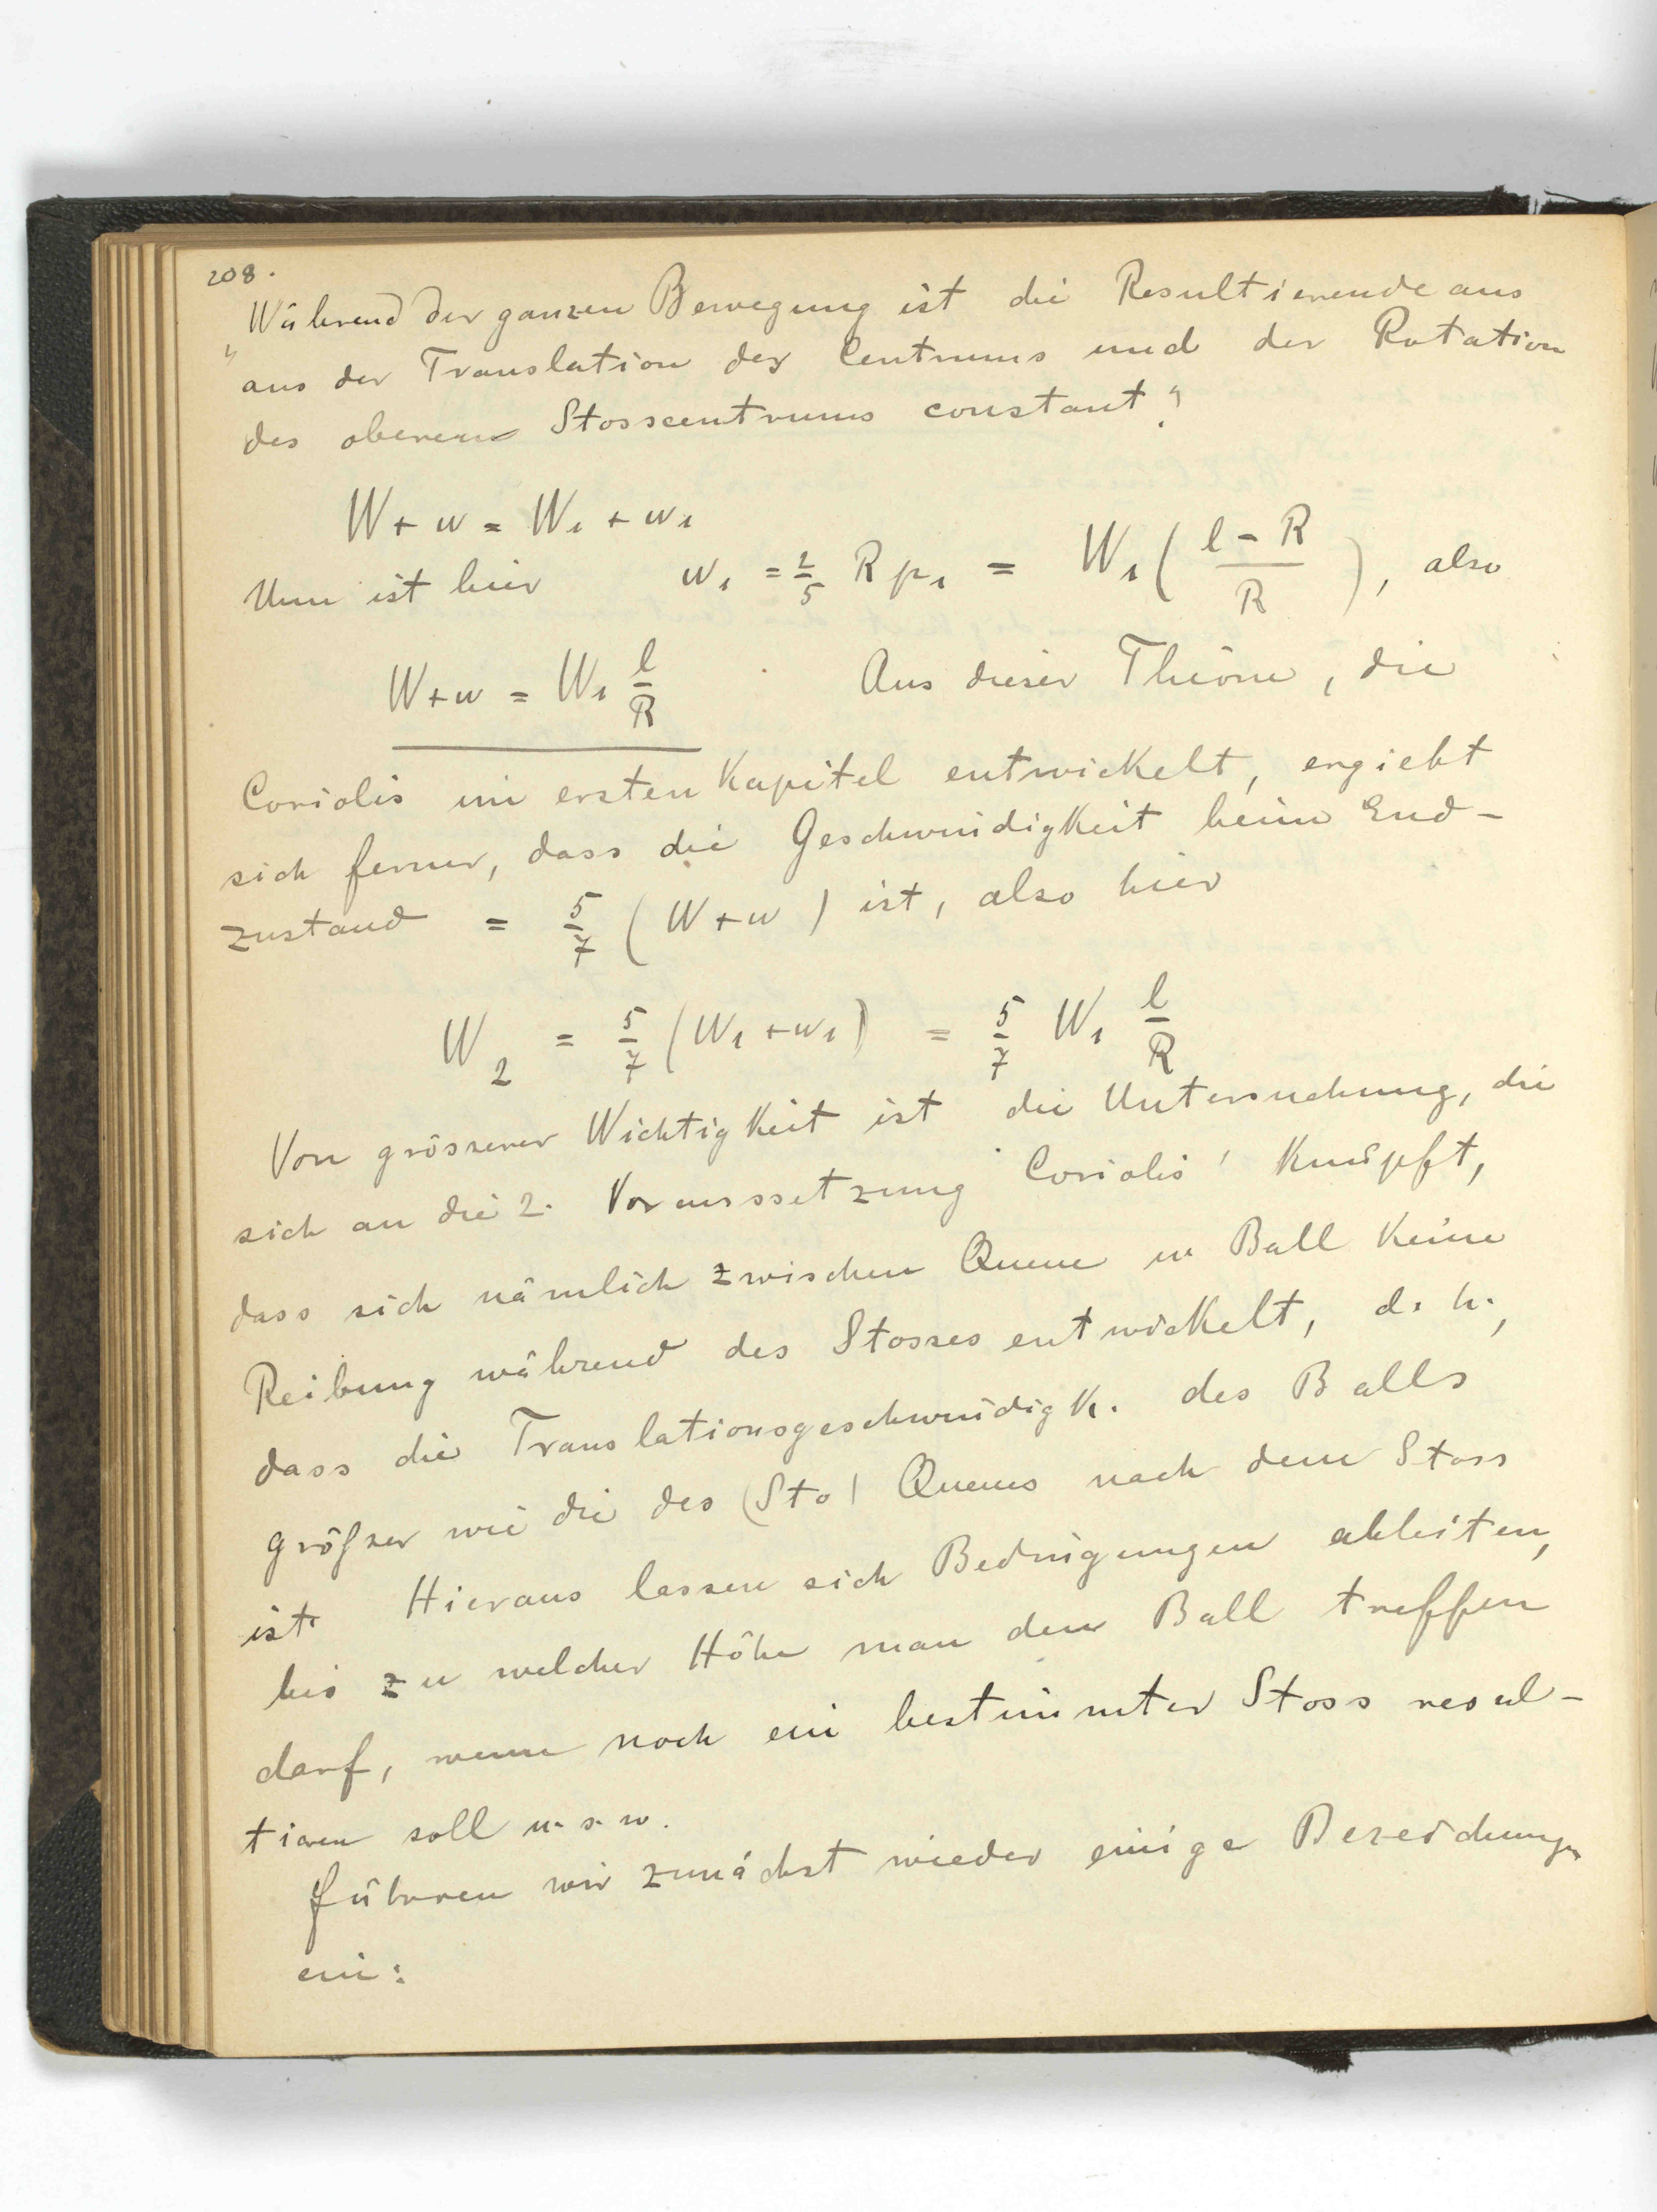 208.
„Während der ganzen Bewegung ist die Resultierende aus
aus der Translation des Centrums und der Rotation
des oberen Stosscentrums constant."
W + w = W₁ + w₁
Nun ist hier w₁ = 2/5 R p₁ = W₁ ( (l - R)/R ), also
W + w = W₁ l/R Aus dieser Theorie, die
Coriolis im ersten Kapitel entwickelt, ergiebt
sich ferner, dass die Geschwindigkeit beim End-
zustand = 5/7 (W + w) ist, also hier
W₂ = 5/7 (W₁ + w₁) = 5/7 W₁ l/R
Von grösserer Wichtigkeit ist die Untersuchung, die
sich an die 2. Voraussetzung Coriolis' knüpft,
dass sich nämlich zwischen Queue u Ball keine
Reibung während des Stosses entwickelt, d. h.,
dass die Translationsgeschwindigk. des Balls
größer wie die des (Sto) Queues nach dem Stoss
ist. Hieraus lassen sich Bedingungen ableiten,
bis zu welcher Höhe man den Ball treffen
darf, wenn noch ein bestimmter Stoss resul-
tieren soll u. s. w.
Führen wir zunächst wieder einige Bezeichnungen
ein: